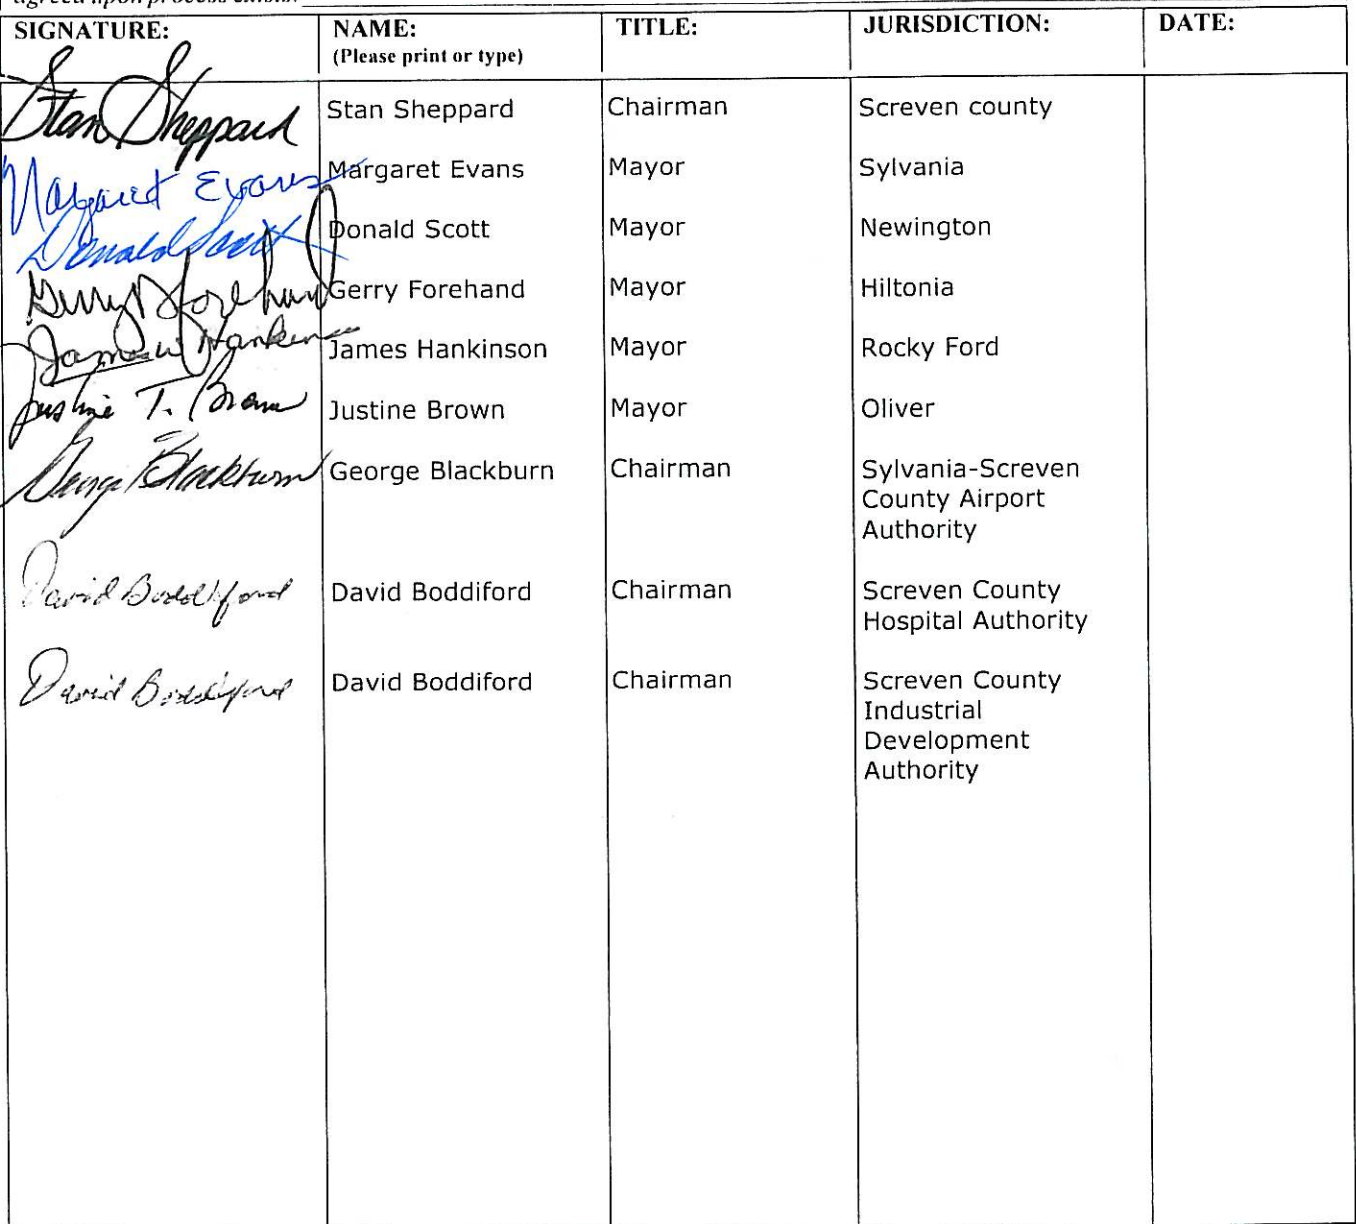 agreed upon process exists.
SIGNATURE: NAME: TITLE: JURISDICTION: DATE:
(Please print or type)
Stan Sheppard Stan Sheppard Chairman Screven county
Margaret Evans Margaret Evans Mayor Sylvania
Donald Scott Donald Scott Mayor Newington
Gerry Forehand Gerry Forehand Mayor Hiltonia
James W Hankinson James Hankinson Mayor Rocky Ford
Justine T. Brown Justine Brown Mayor Oliver
George Blackburn George Blackburn Chairman Sylvania-Screven
County Airport
Authority
David Boddiford David Boddiford Chairman Screven County
Hospital Authority
David Boddiford David Boddiford Chairman Screven County
Industrial
Development
Authority